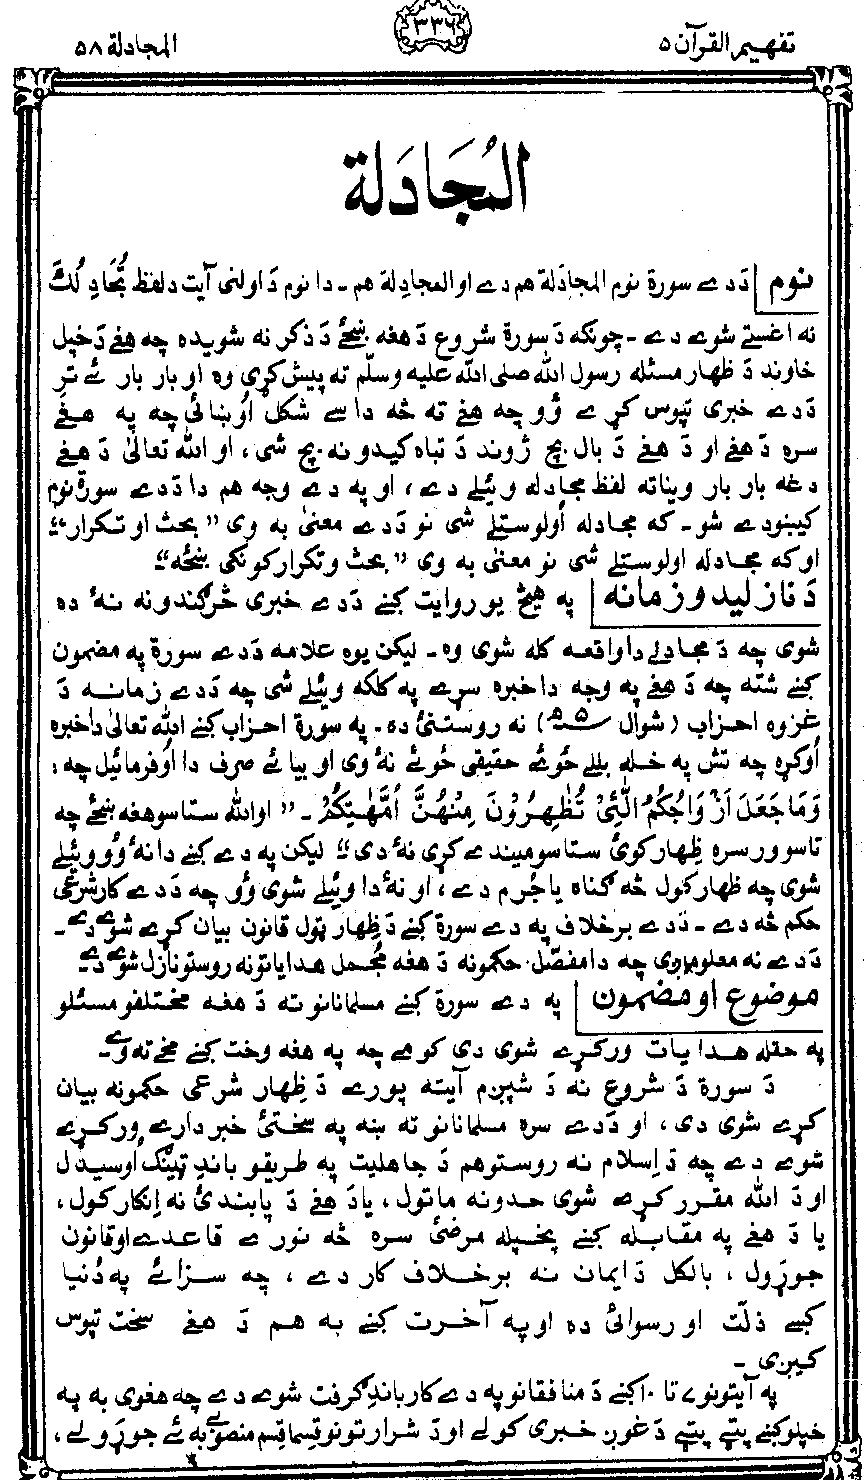 تفهیم القرآن ۵
۳۳۶
المجادلة ۵۸
المُجَادَلة
نوم
دَدے سورة نوم المجادَلة هم دے او المجادِلة هم ـ دا نوم دَ اولنی آیت د لفظ تُجَادِلُكَ
نه اغستے شوے دے ـ چونکه دَ سورة شروع دَ هغه ښځے دَ ذکر نه شویده چه هغے دَ خپل
خاوند دَ ظهار مسئله رسول الله صلی الله علیه وسلّم ته پیش کړی وه او بار بار ئے تر
دَدے خبری تپوس کړے ؤو چه هغے ته څه داسے شکل اوُښائی چه په هغے
سره دَ هغے او دَ هغے دَ بال بچ ژوند دَ تباه کیدو نه بچ شی، او الله تعالیٰ دَ هغے
دغه بار بار ویناته لفظ مجادله وئیلے دے، او په دے وجه هم دا دَدے سورة نوم
کیښودے شو ـ که مجادله اُولوستلے شی نو دَدے معنیٰ به وی ”بحث او تکرار“؛
او که مجادله اولوستلے شی نو معنیٰ به وی ”بحث و تکرار کونکی ښځه“ـ
دَ نازلیدو زمانه
په هیڅ یو روایت کښے دَدے خبری څرګندونه نهٔ ده
شوی چه دَ مجادلے دا واقعه کله شوی وه ـ لیکن یوه علامه دَدے سورة په مضمون
کښے شته چه دَ هغے په وجه دا خبره سړے په کلکه وئیلے شی چه دَدے زمانه دَ
غزوه احزاب (شوال ۵ ھ) نه روستنئ ده ـ په سورة احزاب کښے الله تعالیٰ دا خبره
اُوکړه چه تش په خله بللے ځوئے حقیقی ځوئے نهٔ وی او بیا ئے صرف دا اُوفرمائیل چه :
وَمَا جَعَلَ اَزْوَاجَكُمُ الّٰٓـِٔیْ تُظٰهِرُوْنَ مِنْهُنَّ اُمَّهٰتِكُمْ ـ ”او الله ستاسو هغه ښځے چه
تاسو ورسره ظهار کوئ ستاسو میندے کړی نهٔ دی“ لیکن په دے کښے دا نهٔ ؤو وئیلے
شوی چه ظهار کول څه ګناه یا جُرم دے، او نهٔ دا وئیلے شوی ؤو چه دَدے کار شرعی
حکم څه دے ـ دَدے برخلاف په دے سورة کښے دَ ظهار ټول قانون بیان کړے شوے دے ـ
دَدے نه معلومیږی چه دا مفصّل حکمونه دَ هغه مُجمل هدایاتو نه روستو نازل شوے دے ـ
موضوع او مضمون
په دے سورة کښے مسلمانانو ته دَ هغه مختلفو مسئلو
په حقله هدایات ورکړے شوی دی کومے چه په هغه وخت کښے مخے ته وے ـ
دَ سورة دَ شروع نه دَ شپږم آیته پورے دَ ظهار شرعی حکمونه بیان
کړے شوی دی، او دَدے سره مسلمانانو ته ښه په سختئ خبردارے ورکړے
شوے دے چه دَ اِسلام نه روستو هم دَ جاهلیت په طریقو باندِ ټینګ اُوسیدل
او دَ الله مقرر کړے شوی حدونه ماتول، یا دَ هغے دَ پابندئ نه اِنکار کول،
یا دَ هغے په مقابله کښے پخپله مرضئ سره څه نورے قاعدے او قانون
جوړول، بالکل دَ ایمان نه برخلاف کار دے، چه سزا ئے په دُنیا
کښے ذلّت او رسوائی ده او په آخرت کښے به هم دَ هغے سخت تپوس
کیږی ـ
په آیتونو ۷ تا ۱۰ کښے دَ منافقانو په دے کار باندِ ګرفت شوے دے چه هغوی به په
خپلو کښے پټے پټے دَ غوږ خبری کولے او دَ شرارتونو قسما قسم منصوبے به ئے جوړولے،